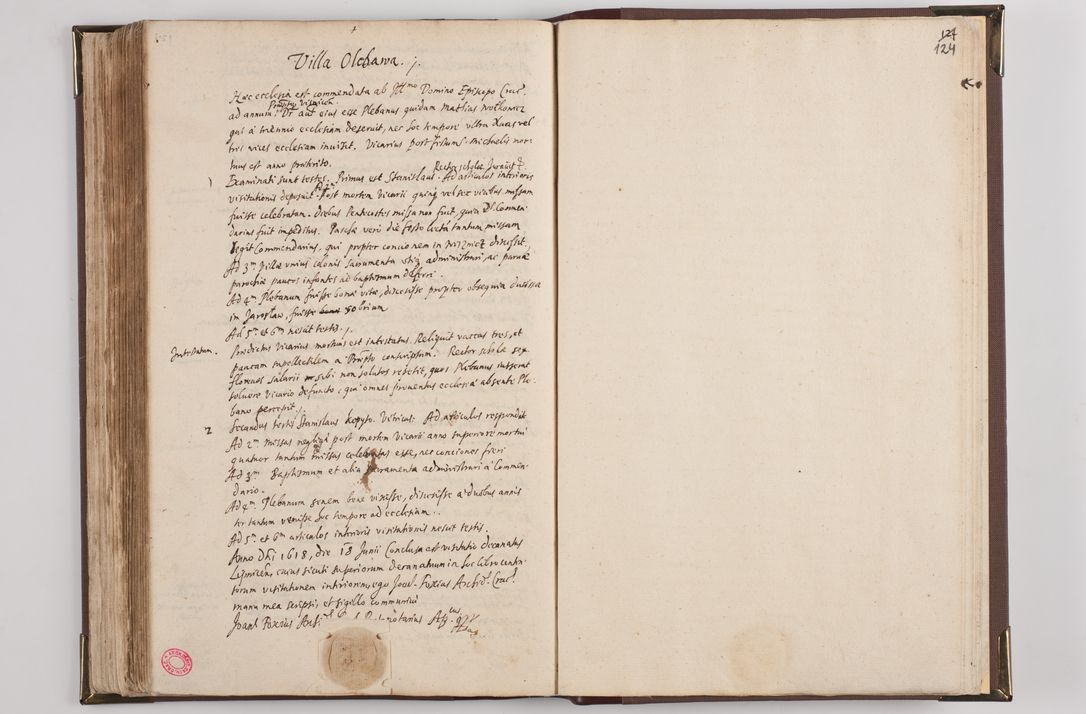 127
124
Villa Olchawa ./.
Haec ecclesia est commendata ab Illmo Domino Episcopo Crac.
Praepositus Visnicen.
ad annum. Dr aut eius esse Plebanus quidam Mathias Wotkowicz
qui à triennio ecclesiam deseruit, nec hoc tempore ultra duas vel
tres vices ecclesiam invisit. Vicarius post festum S. Michaelis mor-
tuus est anno praeterito.
Rector scholae Juratus
1 Examinati sunt testes. Primus est Stanislaus. Ad articulos interioris
visitationis deposuit. Post mortem Vicarii quinq vel sex vicibus missam
fuisse celebratam. Diebus Pentecostes missa non fuit, quia Dl. Commen-
darius fuit impeditus. Paschae vero die festo lecta tantum missam
legit Commendarius, qui propter concionem in Wisnicz discessit.
Ad 3m Villae unius colonis sacramenta administrari ac parvae
parochiae paucos infantes ad baptismum deferri.
Ad 4m Plebanum fuisse bonae vitae, discessisse propter obsequia Ducissae
in Jaroslaw, fuisse sobrium
Ad 5m et 6m nescit testis ./.
Intestatum. Praedictus Vicarius mortuus est intestatus. Reliquit vaccas tres, et
paucam supellectilem a Praepto conscriptam. Rector scholae sex
florenos salarii sibi non solutos repetit, quos Plebanus
solvere Vicario defuncto, qui omnes proventus ecclesiae absente Ple-
bano percepit ./.
2 Secundus testis Stanislaus Kopyto. Vitricus. Ad articulos respondit
Ad 2m Missas negligi post mortem Vicarii anno superiore mortui
quatuor tantum missas celebratas esse, nec conciones fieri
Ad 3m Baptismum et alia sacramenta administrari à Commen-
dario.
Ad 4m Plebanum senem bene vixisse, discessisse a duobus annis
ter tantum venisse hoc tempore ad ecclesiam.
Ad 5m et 6m articulos interioris visitationis nescit testis.
Anno Dni 1618, die 18 Junii Conclusa est visitatio decanatus
Lipnicen, cuius sicuti superiorum decanatuum in hoc libro conten-
torum visitationem interiorem, ego Joan. Foxius Archid. Crac.
manu mea scripsi, et sigillo communivi
Joan Foxius notarius